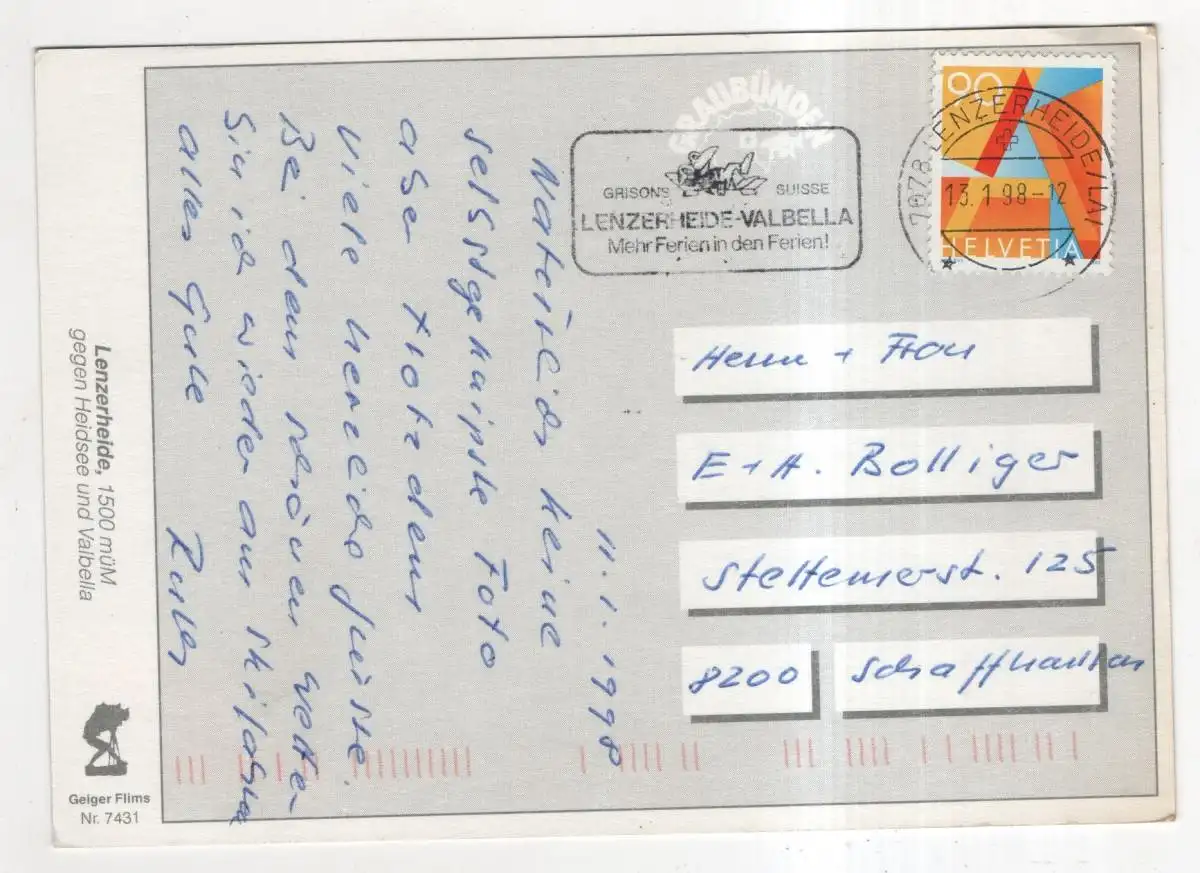 11.1.1998
Natürlich keine
selbstgeknipste Foto
aber trotzdem
viele herzliche Grüsse.
Bei dem schönen Wetter
bin ich wieder am skifahren
alles Gute
GRAUBÜNDEN
GRISONS SUISSE
LENZERHEIDE-VALBELLA
Mehr Ferien in den Ferien!
90
7078 LENZERHEIDE/LAI
13.1.98-12
HELVETIA
Herrn + Frau
E + H. Bolliger
Stettemerst. 125
8200 Schaffhausen
Lenzerheide, 1500 müM
gegen Heidsee und Valbella
Geiger Flims
Nr. 7431